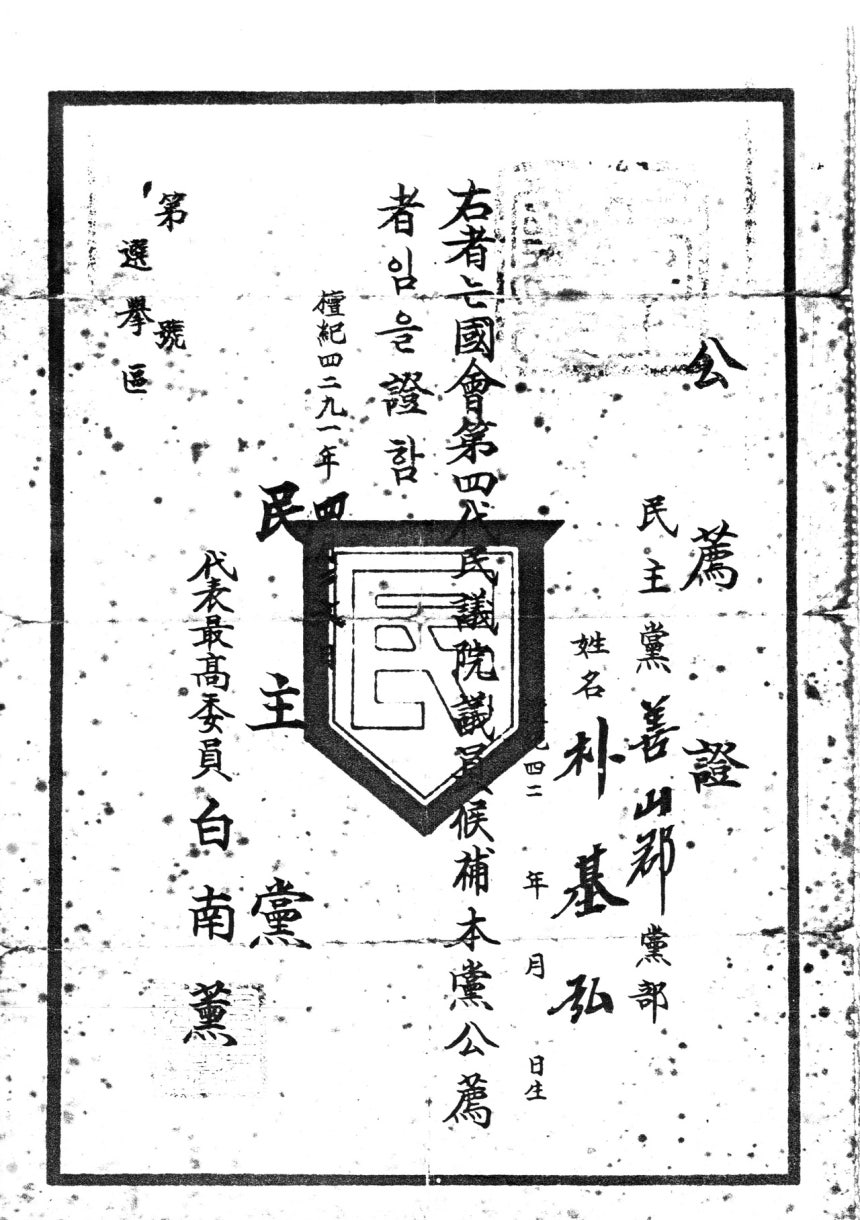 公薦證
民主黨善山郡黨部
姓名 朴基弘
四二 年 月 日生
右者는國會第四代民議院議員候補本黨公薦
者임을證함
檀紀四二九一年四
民主黨
代表最高委員 白南薰
第 號
選擧區